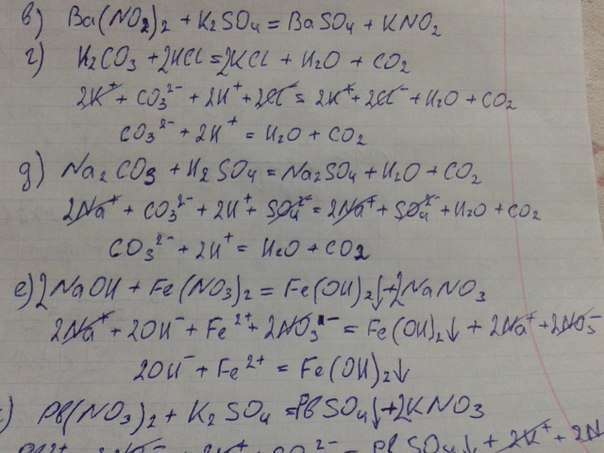 в) Ba(NO₂)₂ + K₂SO₄ = BaSO₄ + KNO₂
г) K₂CO₃ + 2HCl = 2KCl + H₂O + CO₂
2K⁺ + CO₃²⁻ + 2H⁺ + 2Cl⁻ = 2K⁺ + 2Cl⁻ + H₂O + CO₂
CO₃²⁻ + 2H⁺ = H₂O + CO₂
д) Na₂CO₃ + H₂SO₄ = Na₂SO₄ + H₂O + CO₂
2Na⁺ + CO₃²⁻ + 2H⁺ + SO₄²⁻ = 2Na⁺ + SO₄²⁻ + H₂O + CO₂
CO₃²⁻ + 2H⁺ = H₂O + CO₂
е) 2NaOH + Fe(NO₃)₂ = Fe(OH)₂↓ + 2NaNO₃
2Na⁺ + 2OH⁻ + Fe²⁺ + 2NO₃⁻ = Fe(OH)₂↓ + 2Na⁺ + 2NO₃⁻
2OH⁻ + Fe²⁺ = Fe(OH)₂↓
) Pb(NO₃)₂ + K₂SO₄ = PbSO₄↓ + 2KNO₃
PbSO₄↓ + 2K⁺ + 2N